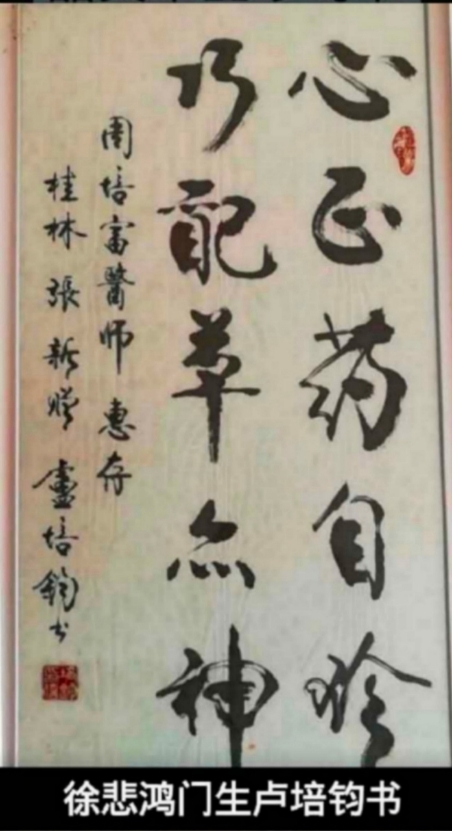 心正药自
巧配草亦神
周培富醫师 惠存
桂林 張新贈 盧培鈞书
徐悲鸿门生卢培钧书